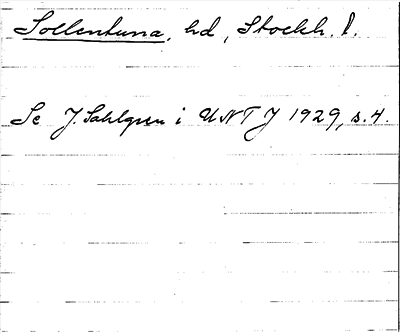 Sollentuna, hd, Stockh. l.
Se J. Sahlgren i UNTJ 1929, s. 4.